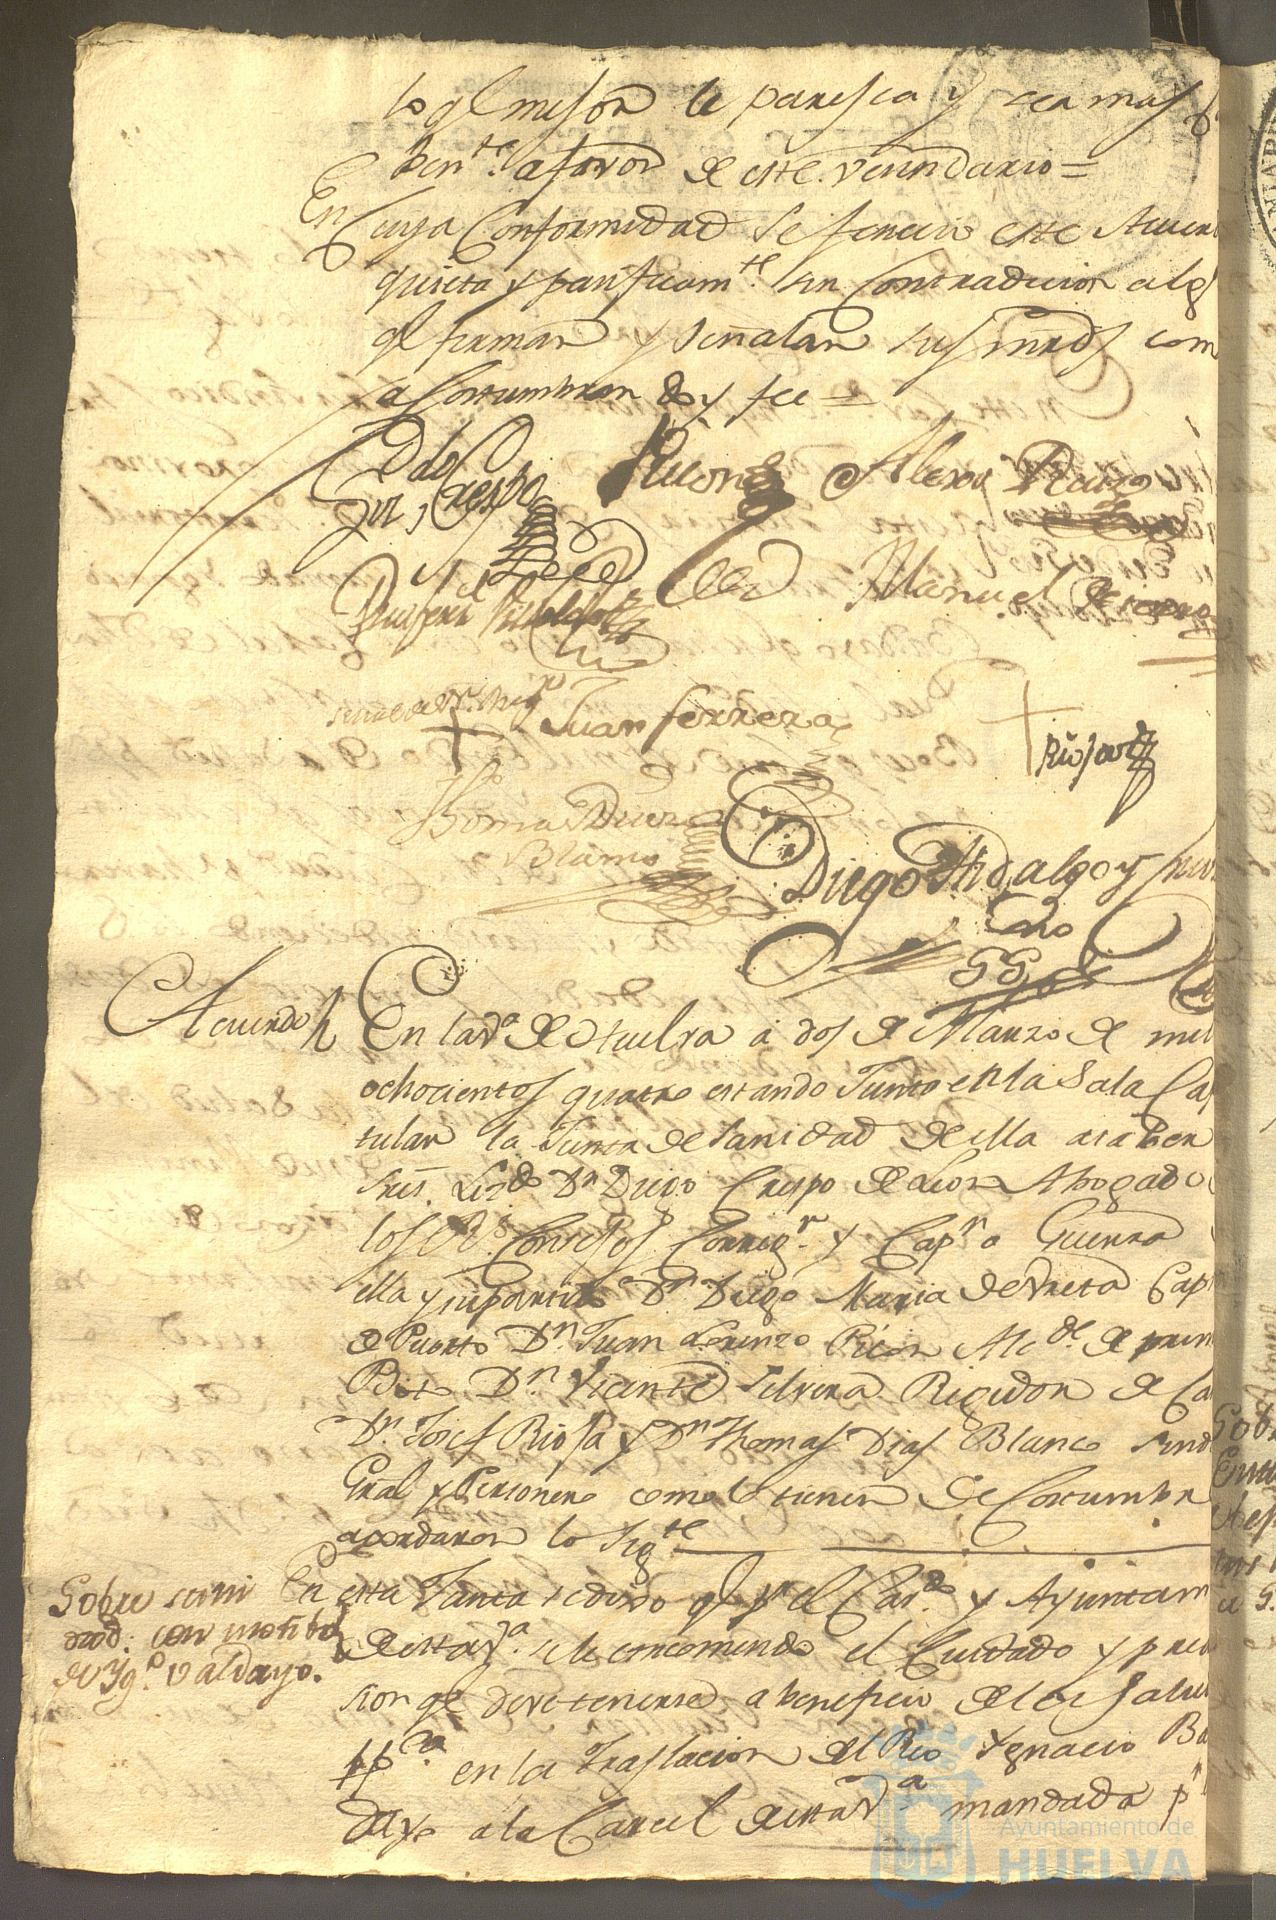 lo ql mejor le paresca y sea mas
ben.te a favor de este vecindario=
En cuya Conformidad se fenecio este Acuer
quieta y pacificam.te sin Contradicion alg
ql firman y señalan sus mrds com
acostumbran doy fee=
Ldo Crespo Picon Alexos Razo
Manuel
señal de Dn. Mig.l Juan ferrera Riosard
Thomas Diaz
Blanco
Diego Hidalgo y
Sno
Acuerdo En la v.a de Huelva á dos de Marzo de mil
ochocientos quatro estando Junto en la Sala Cap
tular la Junta de Sanidad de ella asaber
Sres. Lizdo Dn Diego Crespo de Leon Abogado
los Rs. Consejos Correg.r y Cap.n a Guerra
ella y su partido Dn Diego Maria de Vreta Cap
de Puerto Dn. Juan Lorenzo Picon Alcde. de prim
Boto Dn. Vicente Silvera Rigidor de Ca
Dn Josef Riosa y Dn Thomas Dias Blanco Sind
Gral y Personero como lo tienen de Costumbr
acordaron lo sig.te
Sobre sani
dad: con motibo
de Yg.o Valdayo.
En esta Junta se dixo ql pr el Cav.do y Ayuntam
de esta v.a se le encomendo el Cuidado y preci
sion ql deve tenerse a beneficio de la Salud
pp.ca en la Traslacion del Reo Ygnacio Ba
dayo a la Carcel de esta v.a mandada pr
Ayuntamiento de
HUELVA